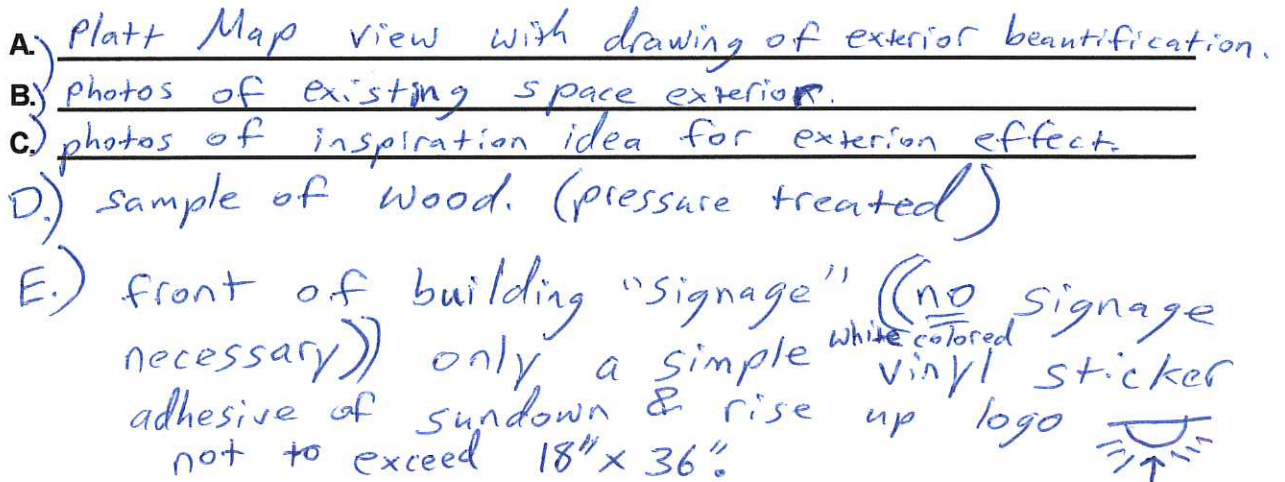 A.) Platt Map view with drawing of exterior beautification.
B.) photos of existing space exterior.
C.) photos of inspiration idea for exterion effect.
D.) sample of wood. (pressure treated)
E.) front of building "signage" ((no signage
necessary)) only a simple white colored vinyl sticker
adhesive of sundown & rise up logo
not to exceed 18" x 36".